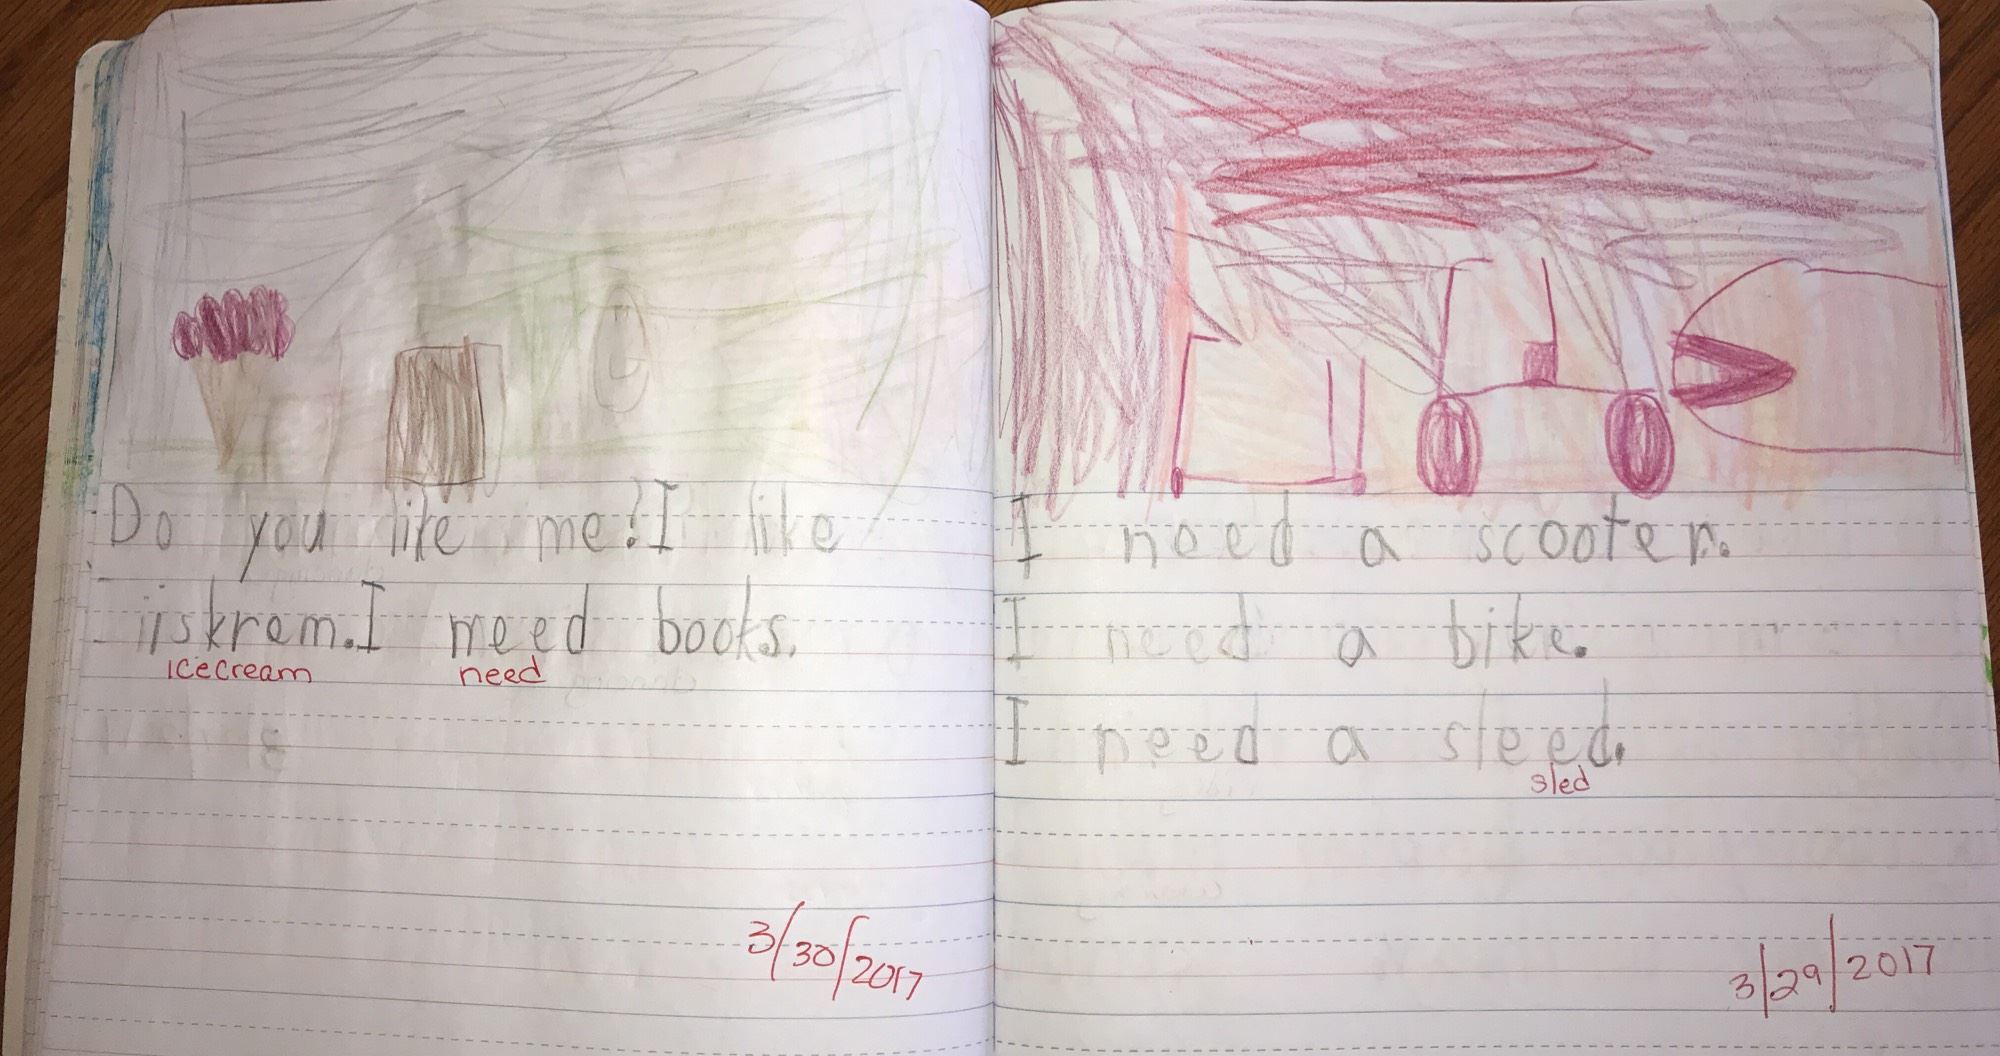 Do you like me? I like
iiskrem. I meed books.
icecream need
3/30/2017
I need a scooter.
I need a bike.
I need a sleed.
sled
3/29/2017